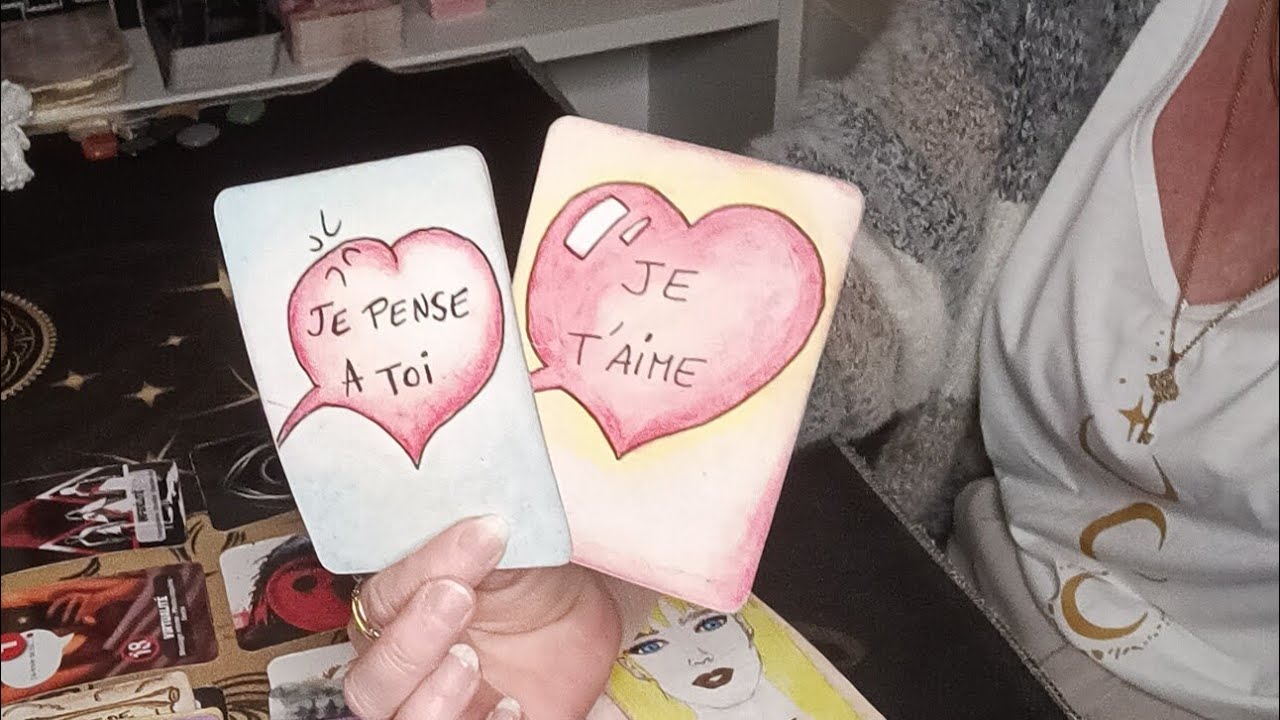 JE PENSE
A TOi
JE
T'AiME
18
VIRTUALITÉ